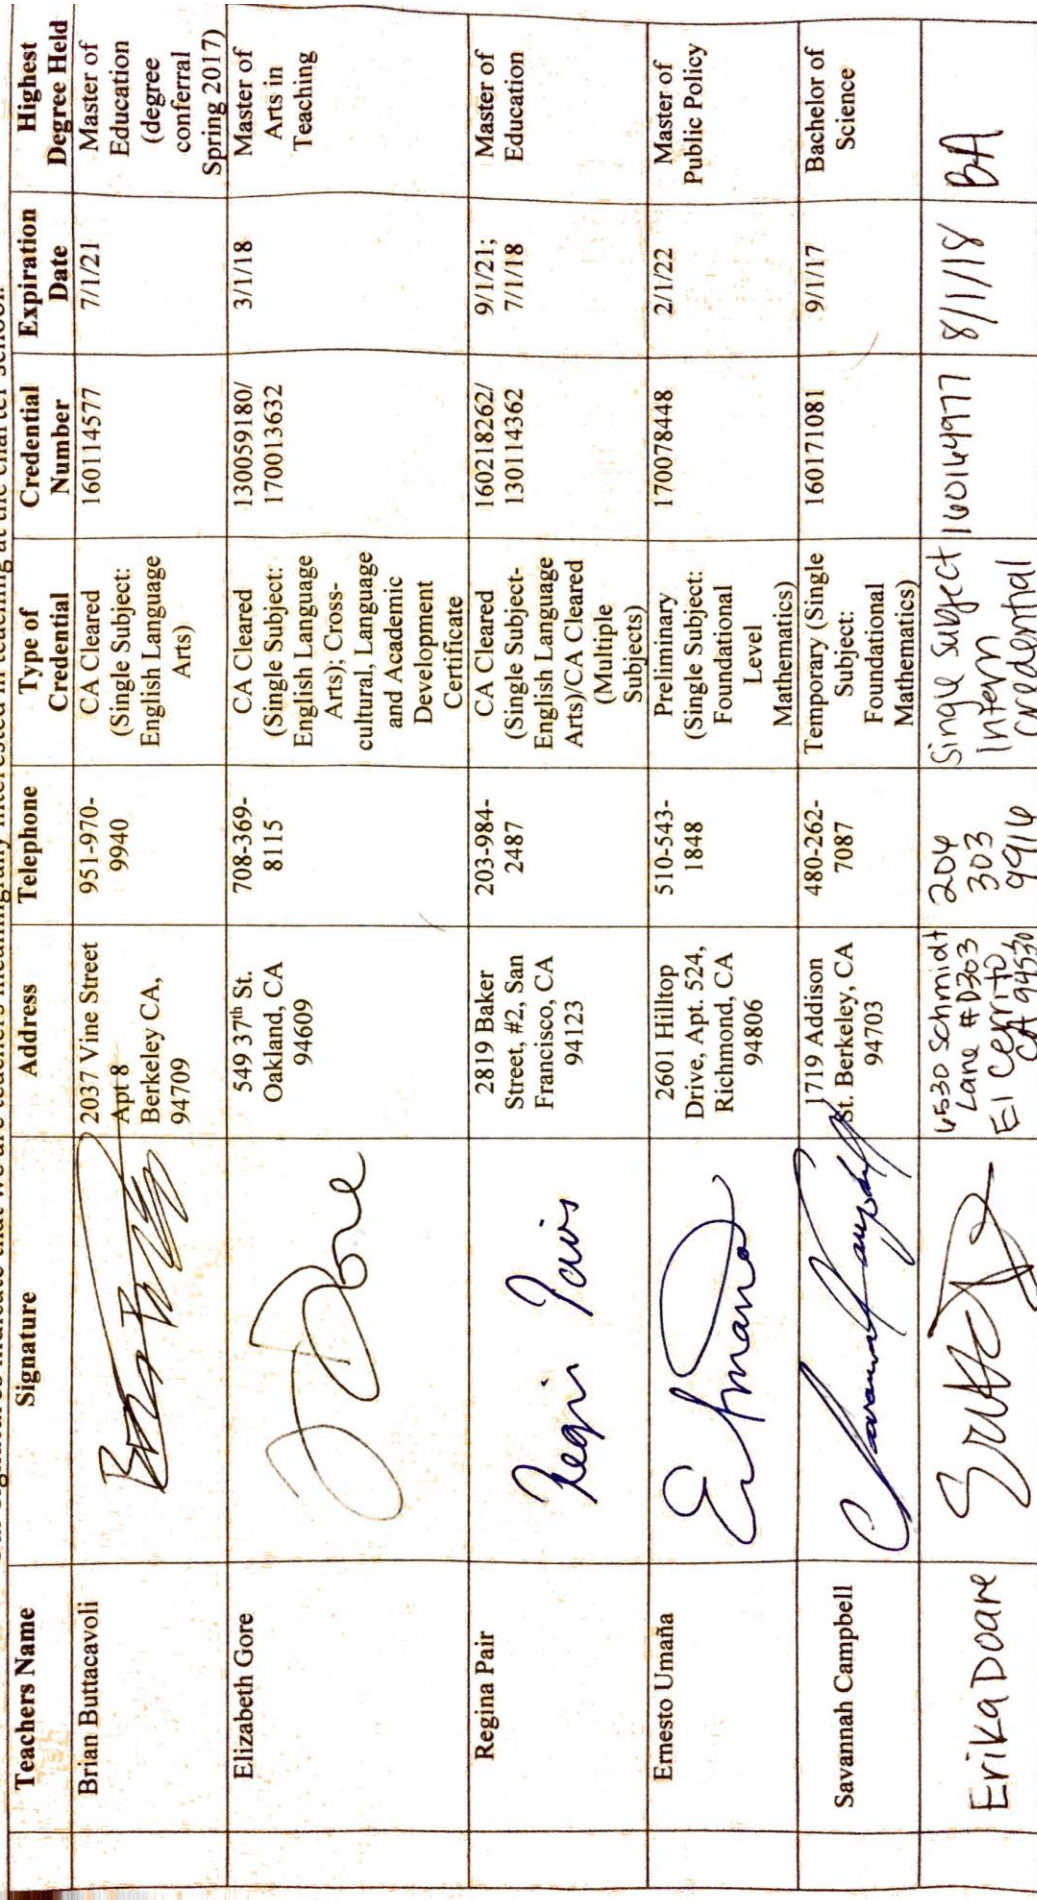 Teachers Name Signature Address Telephone Type of Credential Credential Number Expiration Date Highest Degree Held
Brian Buttacavoli
2037 Vine Street
Apt 8
Berkeley CA,
94709
951-970-
9940
CA Cleared
(Single Subject:
English Language
Arts)
160114577
7/1/21
Master of
Education
(degree
conferral
Spring 2017)
Elizabeth Gore
549 37th St.
Oakland, CA
94609
708-369-
8115
CA Cleared
(Single Subject:
English Language
Arts); Cross-
cultural, Language
and Academic
Development
Certificate
130059180/
170013632
3/1/18
Master of
Arts in
Teaching
Regina Pair
2819 Baker
Street, #2, San
Francisco, CA
94123
203-984-
2487
CA Cleared
(Single Subject-
English Language
Arts)/CA Cleared
(Multiple
Subjects)
160218262/
130114362
9/1/21;
7/1/18
Master of
Education
Ernesto Umaña
2601 Hilltop
Drive, Apt. 524,
Richmond, CA
94806
510-543-
1848
Preliminary
(Single Subject:
Foundational
Level
Mathematics)
170078448
2/1/22
Master of
Public Policy
Savannah Campbell
1719 Addison
St. Berkeley, CA
94703
480-262-
7087
Temporary (Single
Subject:
Foundational
Mathematics)
160171081
9/1/17
Bachelor of
Science
Erika Doane
6530 Schmidt
Lane #D303
El Cerrito,
CA 94530
206
303
9916
Single Subject
Intern
Credential
160164977
8/1/18
BA